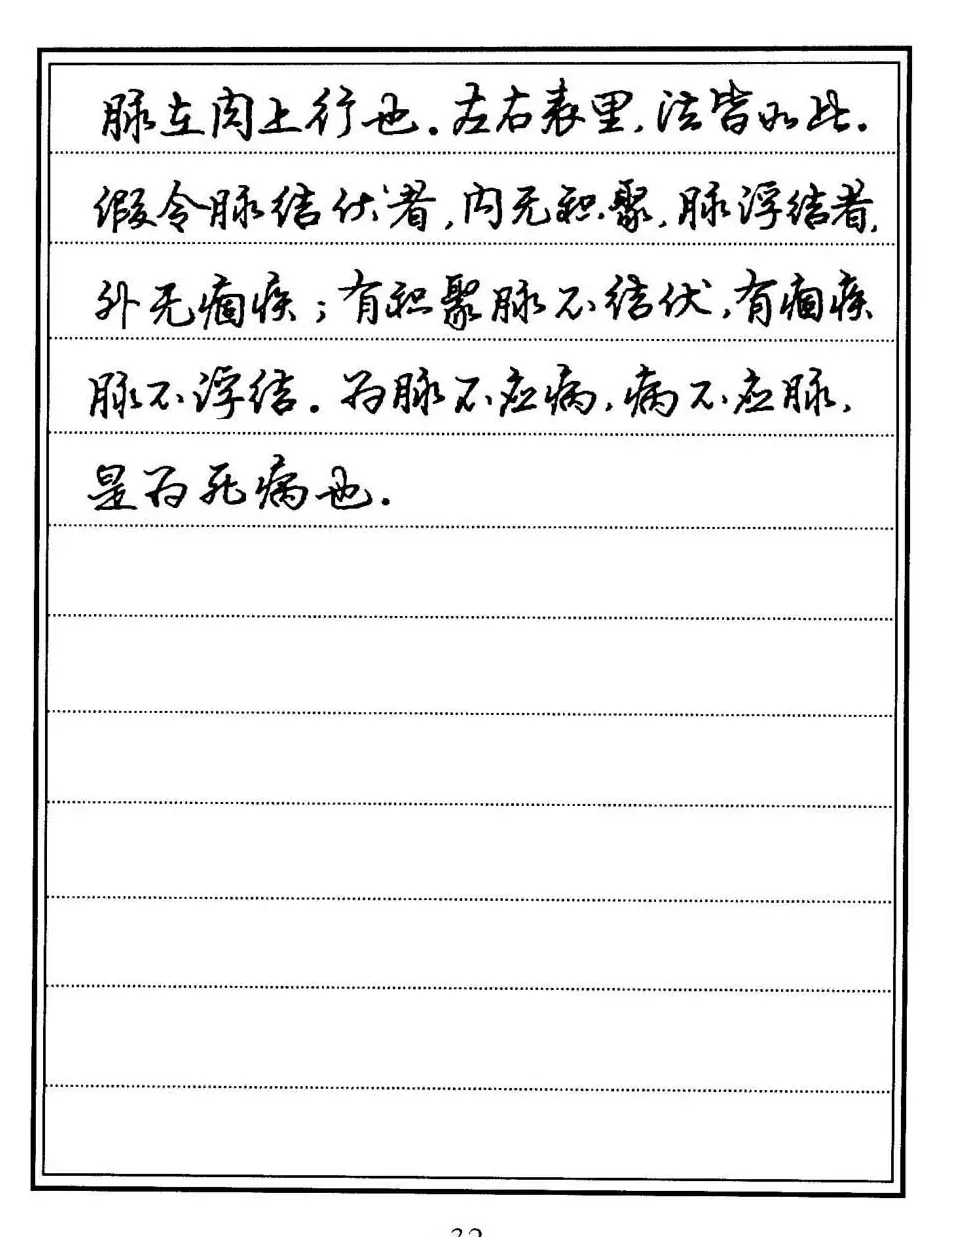 脉在肉上行也.左右表里,法皆如此.
假令脉结伏者,内无积聚,脉浮结者,
外无痼疾;有积聚脉不结伏,有痼疾
脉不浮结.为脉不应病,病不应脉,
是为死病也.